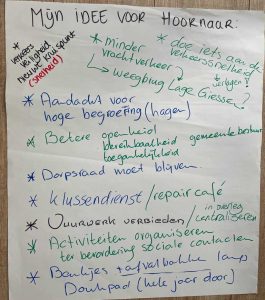 MIJN IDEE VOOR HOORNAAR:
* verkeers
veiligheid
nieuwe kruispunt
(snelheid)
* minder
vrachtverkeer?
* doe iets aan de
verkeerssnelheid
↳ verlagen
↳ weegbrug Lage Giessen?
* Aandacht voor
hoge begroeiing (hagen)
* Betere openheid
bereikbaarheid gemeentebestuur
toegankelijkheid
* Dorpsraad moet blijven
* Klussendienst / repair café
* Vuurwerk verbieden / in overleg
centraliseren
* Activiteiten organiseren
ter bevordering sociale contacten
* Bankjes + afvalbakken langs
Donkpad (hele jaar door)